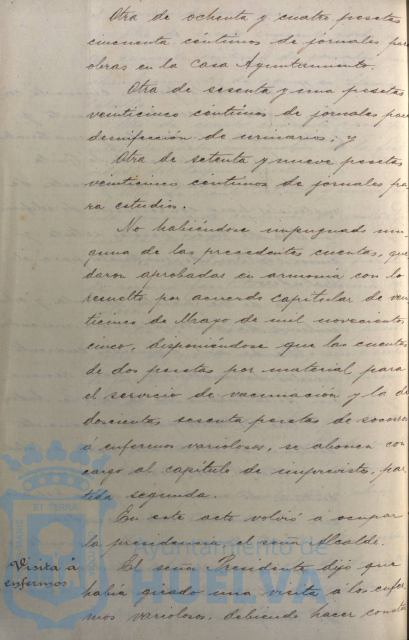 Otra de ochenta y cuatro pesetas
cincuenta céntimos de jornales par
obras en la Casa Ayuntamiento.
Otra de sesenta y una pesetas
veinticinco céntimos de jornales para
desinfección de urinarios; y
Otra de setenta y nueve pesetas
veinticinco céntimos de jornales pa
ra estudios.
No habiéndose impugnado nin
guna de las precedentes cuentas, que
daron aprobadas en armonía con lo
resuelto por acuerdo capitular de vein
ticinco de Mayo de mil novecientos
cinco, disponiéndose que las cuentas
de dos pesetas por material para
el servicio de vacunación y la de
doscientas sesenta pesetas de socorros
á enfermos variolosos, se abonen con
cargo al capítulo de imprevistos, par
tida segunda.
En este acto volvió a ocupar
la presidencia el señor Alcalde.
Visita á
enfermos
El señor Presidente dijo que
había girado una visita á los enfer
mos variolosos, debiendo hacer consta
Ayuntamiento de
HUELVA